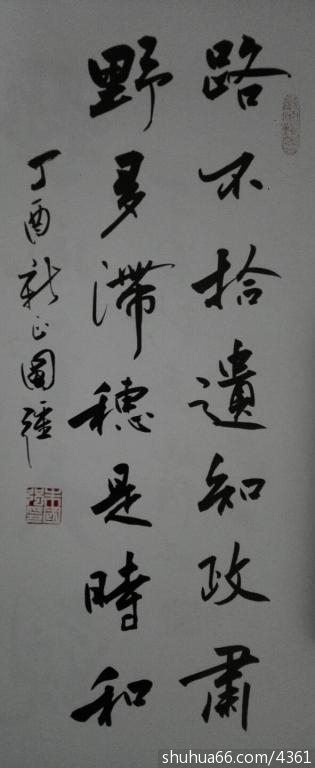 路不拾遺知政肅
野多滯穗是時和
丁酉新正圖強
shuhua66.com/4361